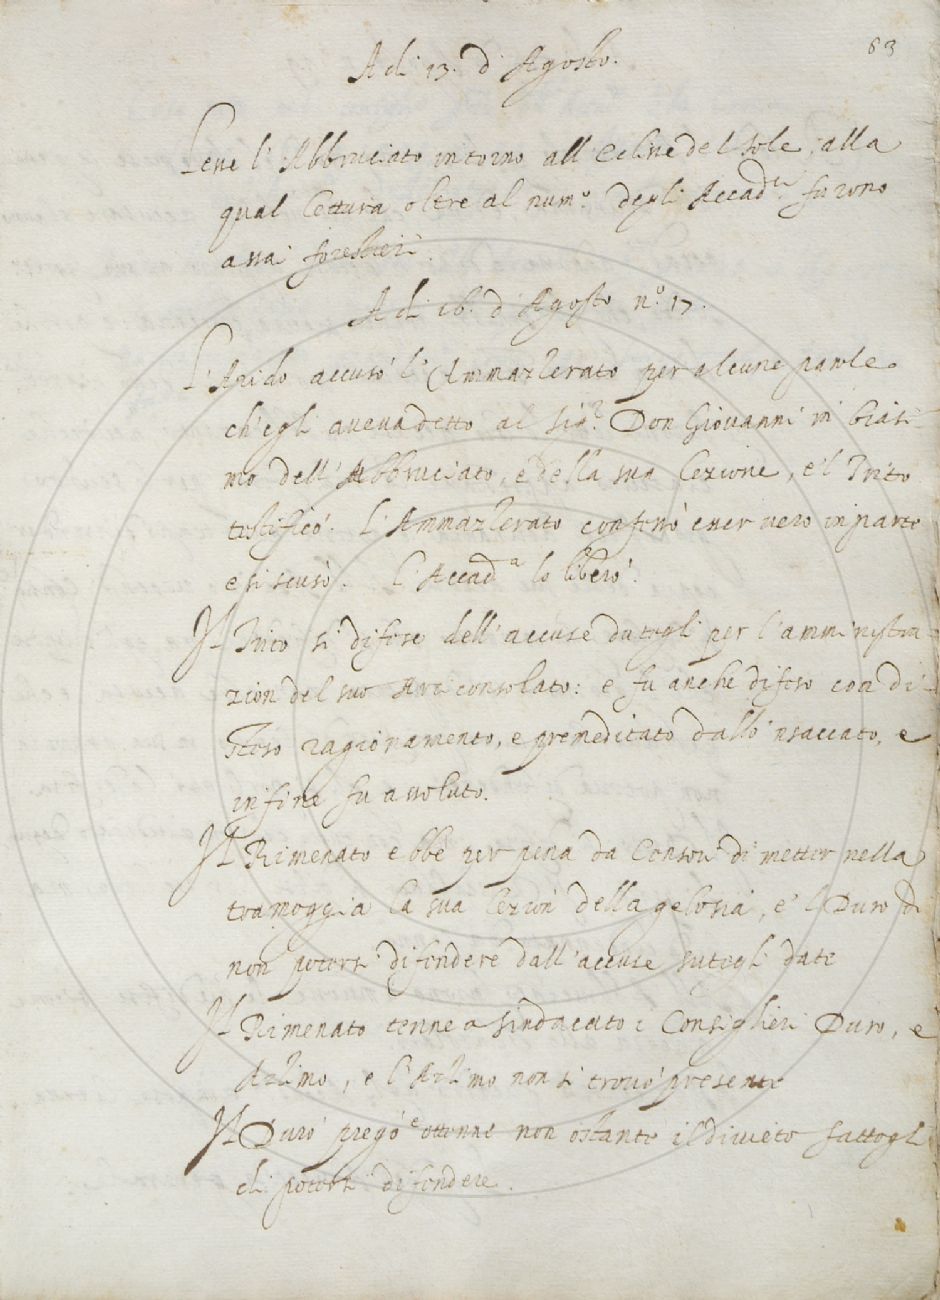 83
A dì 13. d'Agosto.
Lesse l'Abbruciato intorno all'Eclisse del sole, alla
qual lettura oltre al num.o degli Accad.ci furono
assai forestieri.
A dì 16. d'Agosto n.o 17.
L'Arido accusò l'Ammazzerato per alcune parole
ch'egli aveva detto al Sig.r Don Giovanni in biasi-
mo dell'Abbruciato, e della sua lezione, e'l Trito
testificò. L'Ammazzerato confessò esser vero in parte
e si scusò. L'Accad.a lo liberò.
Il Trito si difese dell'accuse dategli per l'amministra
zion del suo Arciconsolato: e fu anche difeso con di-
steso ragionamento, e premeditato dallo'nsaccato, e
infine fu assoluto.
Il Rimenato ebbe per pena da Consoli di metter nella
tramoggia la sua lezion della gelosia, e'l Duro di
non potersi difendere dall'accuse sutegli date
Il Rimenato tenne a sindacato i Consiglieri Duro, e
Azzimo, e l'Azzimo non si trovò presente
Il Duro pregò e ottenne non ostante il divieto fattogli
di potersi difendere.